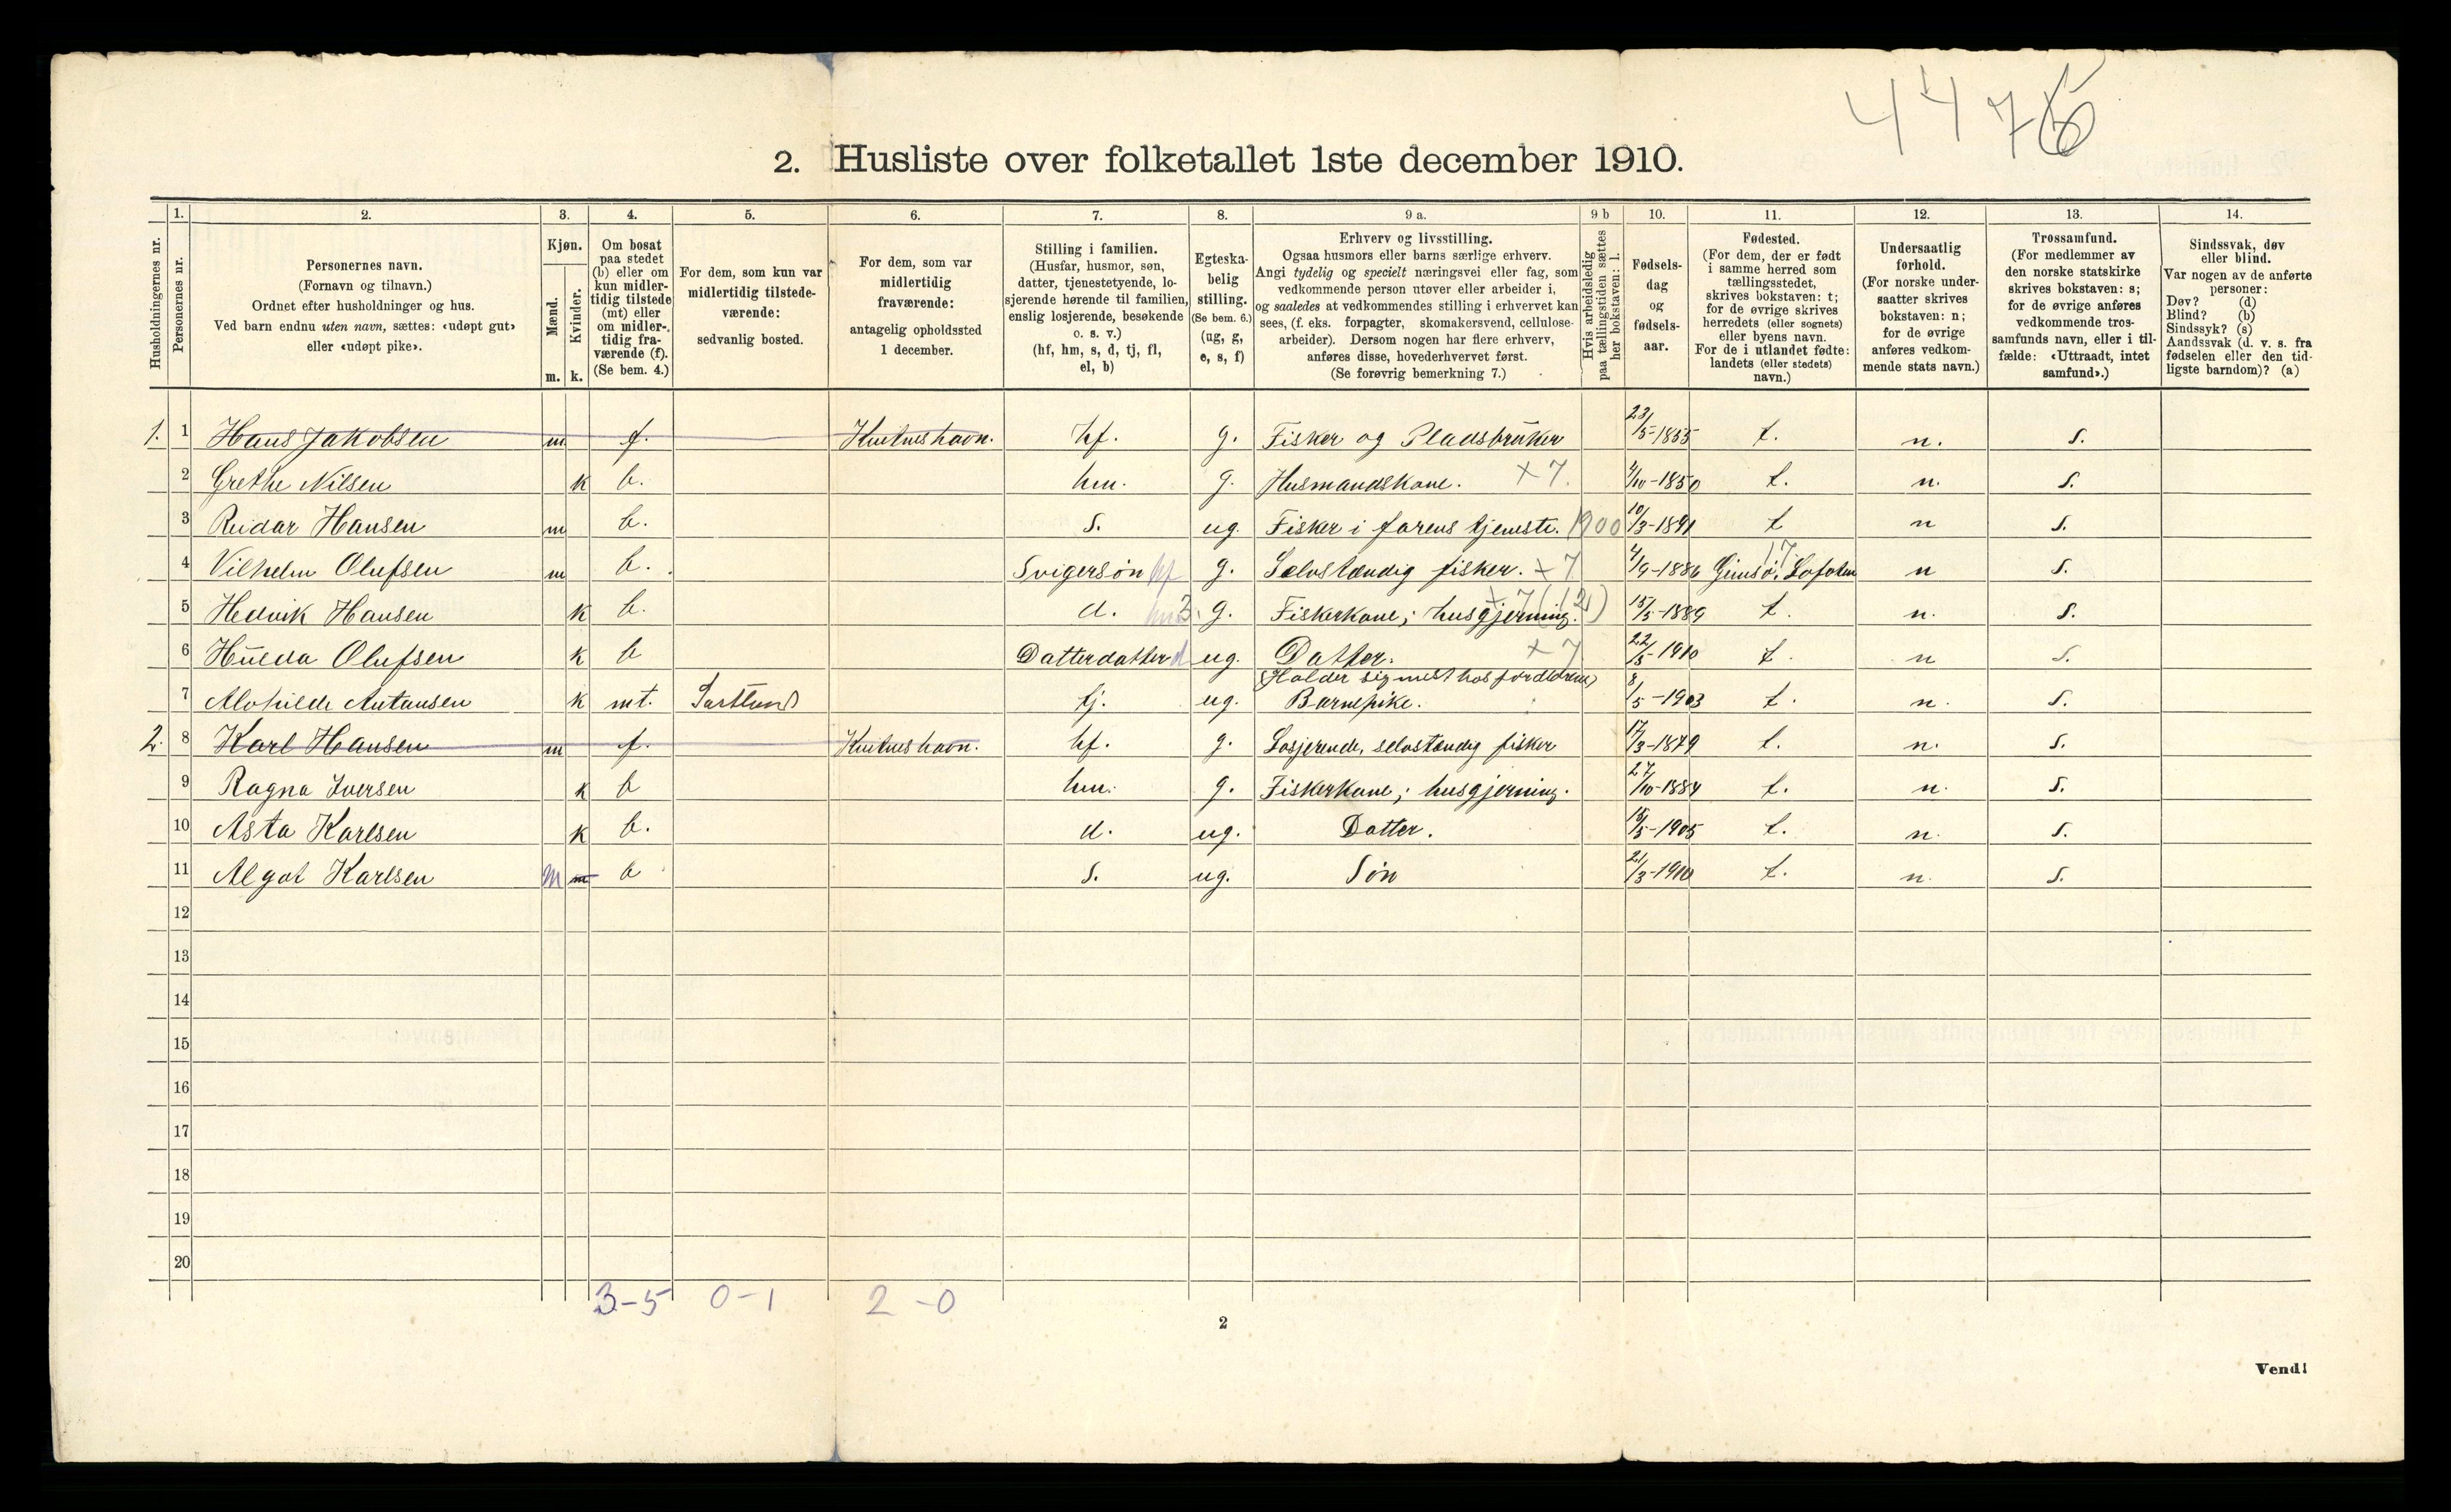 4476
2. Husliste over folketallet 1ste december 1910.
Husholdningernes nr.
1.
Personernes nr.
2.
Personernes navn.
(Fornavn og tilnavn.)
Ordnet efter husholdninger og hus.
Ved barn endnu uten navn, sættes: «udøpt gut»
eller «udøpt pike».
3.
Kjøn.
Mænd.
Kvinder.
m. k.
4.
Om bosat
paa stedet
(b) eller om
kun midler-
tidig tilstede
(mt) eller
om midler-
tidig fra-
værende (f).
(Se bem. 4.)
5.
For dem, som kun var
midlertidig tilstede-
værende:
sedvanlig bosted.
6.
For dem, som var
midlertidig
fraværende:
antagelig opholdssted
1 december.
7.
Stilling i familien.
(Husfar, husmor, søn,
datter, tjenestetyende, lo-
sjerende hørende til familien,
enslig losjerende, besøkende
o. s. v.)
(hf, hm, s, d, tj, fl,
el, b)
8.
Egteska-
belig
stilling.
(Se bem. 6.)
(ug, g,
e, s, f)
9 a.
Erhverv og livsstilling.
Ogsaa husmors eller barns særlige erhverv.
Angi tydelig og specielt næringsvei eller fag, som
vedkommende person utøver eller arbeider i,
og saaledes at vedkommendes stilling i erhvervet kan
sees, (f. eks. forpagter, skomakersvend, cellulose-
arbeider). Dersom nogen har flere erhverv,
anføres disse, hovederhvervet først.
(Se forøvrig bemerkning 7.)
9 b
Hvis arbeidsledig
paa tællingstiden sættes
her bokstaven: l.
10.
Fødsels-
dag
og
fødsels-
aar.
11.
Fødested.
(For dem, der er født
i samme herred som
tællingsstedet,
skrives bokstaven: t;
for de øvrige skrives
herredets (eller sognets)
eller byens navn.
For de i utlandet fødte:
landets (eller stedets)
navn.)
12.
Undersaatlig
forhold.
(For norske under-
saatter skrives
bokstaven: n;
for de øvrige
anføres vedkom-
mende stats navn.)
13.
Trossamfund.
(For medlemmer av
den norske statskirke
skrives bokstaven: s;
for de øvrige anføres
vedkommende tros-
samfunds navn, eller i til-
fælde: «Uttraadt, intet
samfund».)
14.
Sindssvak, døv
eller blind.
Var nogen av de anførte
personer:
Døv? (d)
Blind? (b)
Sindssyk? (s)
Aandssvak (d. v. s. fra
fødselen eller den tid-
ligste barndom)? (a)
1. 1 Hans Jakobsen m f. hf. g. Fisker og Pladsbruker 23/5-1855 t. n. s.
2 Grethe Nilsen k b. hm. g. Husmandskone. +7. 4/10-1850 t. n. s.
3 Reidar Hansen m b. s. ug. Fisker i farens tjeneste. 1900 10/3-1891 t n s.
4 Vilhelm Olufsen m b. Svigersøn hf g. Selvstændig fisker. +7 4/9-1886 Gimsø, Lofoten 17 n s.
5 Hedvik Hansen k b. d. g. Fiskerkone; husgjerning. +7 15/5-1889 t. n. s.
6 Hulda Olufsen k b Datterdatter d ug. Datter. +7 22/5-1910 t. n s.
(Holder sig mest hos forældrene)
7 k mt. tj. ug. Barnepike. 8/5-1903 t. n. s.
2. 8 Karl Hansen m f. hf. g. Losjerende, selvstændig fisker 17/3-1879 t. n. s.
9 Ragna Iversen k b hm. g. Fiskerkone; husgjerning. 27/10-1884 t. n. s.
10 Asta Karlsen k b. d. ug. Datter. 15/5-1905 t. n. s.
11 Algot Karlsen m m b s. ug. Søn 21/3-1910 t. n. s.
12
13
14
15
16
17
18
19
20
3-5 0-1 2-0
2
Vend!